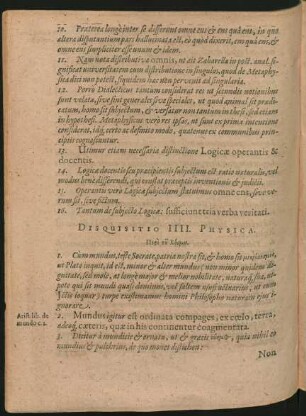 10. Præterea longè inter se differunt omne ens & ens quà ens, in quo
altera disputantium pars hallucinata est, eò quòd dixerit, ens quà ens, &
omne ens simpliciter esse unum & idem.
11. Nam nota distributiva omnis, ut ait Zabarella in post. anal. signi-
ficat universitatem cum distributione in singulos, quod de Metaphy-
sica dici non potest, siquidem hæc non pervadit ad singularia.
12. Porrò Dialecticus tantum considerat res ut secundis notionibus
sunt velatæ, sive sint generales sive speciales, ut quòd animal sit prædi-
catum, homo sit subjectum, & versatur non tantum in thesi, sed etiam
in hypothesi. Metaphysicus verò res ipsas, ut sunt in prima intentione
considerat, idq; certo ac definito modo, quatenus ex communibus prin-
cipiis cognoscuntur.
13. Utimur etiam necessaria distinctione Logicæ operantis &
docentis.
14. Logicæ docentis seu præcipientis subjectum est ratio naturalis, vel
modus benè disserendi, qui constat præceptis inventionis & judicii.
15. Operantis verò Logicæ subjectum statuimus omne ens, sive ve-
rum sit, sive fictum.
16. Tantum de subjecto Logicæ: sufficiunt tria verba veritati.
DISQUISITIO IIII. PHYSICA.
1. Cum mundus, teste Socrate, patria nostra sit, & homo sit
ut Plato inquit, id est, minor & alter mundus: non minor quidem di-
gnitate, sed mole, at longè major & melior nobilitate, natura, sit, ut-
pote qui sit mundi quasi dominus, vel saltem
inquit: turpe existimamus homini Philosopho naturam ejus i-
gnorare.
Arist. lib. de
mundo c. 2.
2. Mundus igitur est ordinata compages, ex cœlo, terra,
adeoq́; cæteris, quæ in his continentur coagmentata.
3. Dicitur à munditie & ornatu, ut & græcis κόσμος, quia nihil eo
mundius & pulchrius, de quo manet distichon:
Non